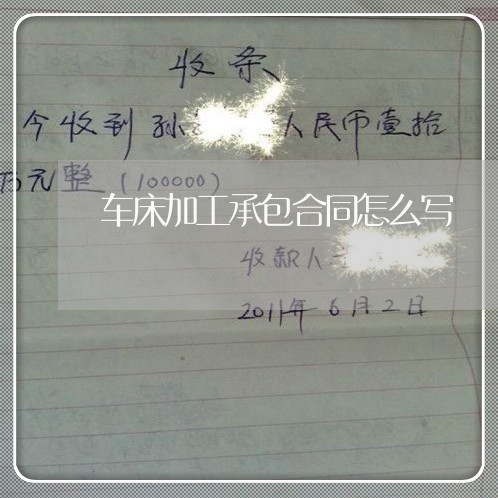 收条
今收到孙 人民币壹拾
万元整(100000)
车床加工承包合同怎么写
收款人
2011年6月2日